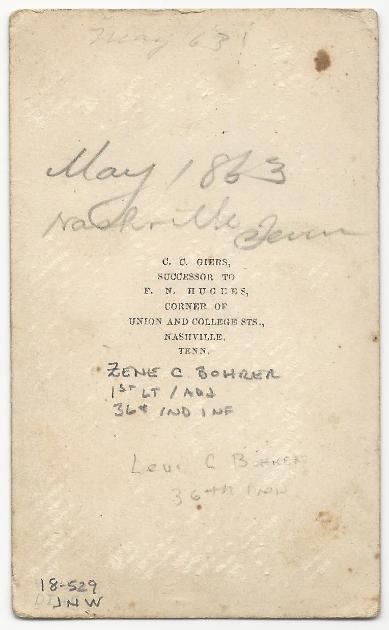 May 63
May 1863
Nashville Tenn
C. C. GIERS,
SUCCESSOR TO
F. N. HUGHES,
CORNER OF
UNION AND COLLEGE STS.,
NASHVILLE,
TENN.
ZENE C. BOHRER
1ST LT / ADJ
36th IND INF
Levi C Bohrer
36TH IND
18-529
JNW